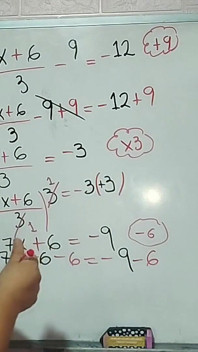 x+6/3 - 9 = -12 +9
x+6/3 - 9+9 = -12+9
+6/3 = -3 x3
x+6/3 3 = -3(+3)
7 1 +6 = -9 -6
6-6 = -9-6